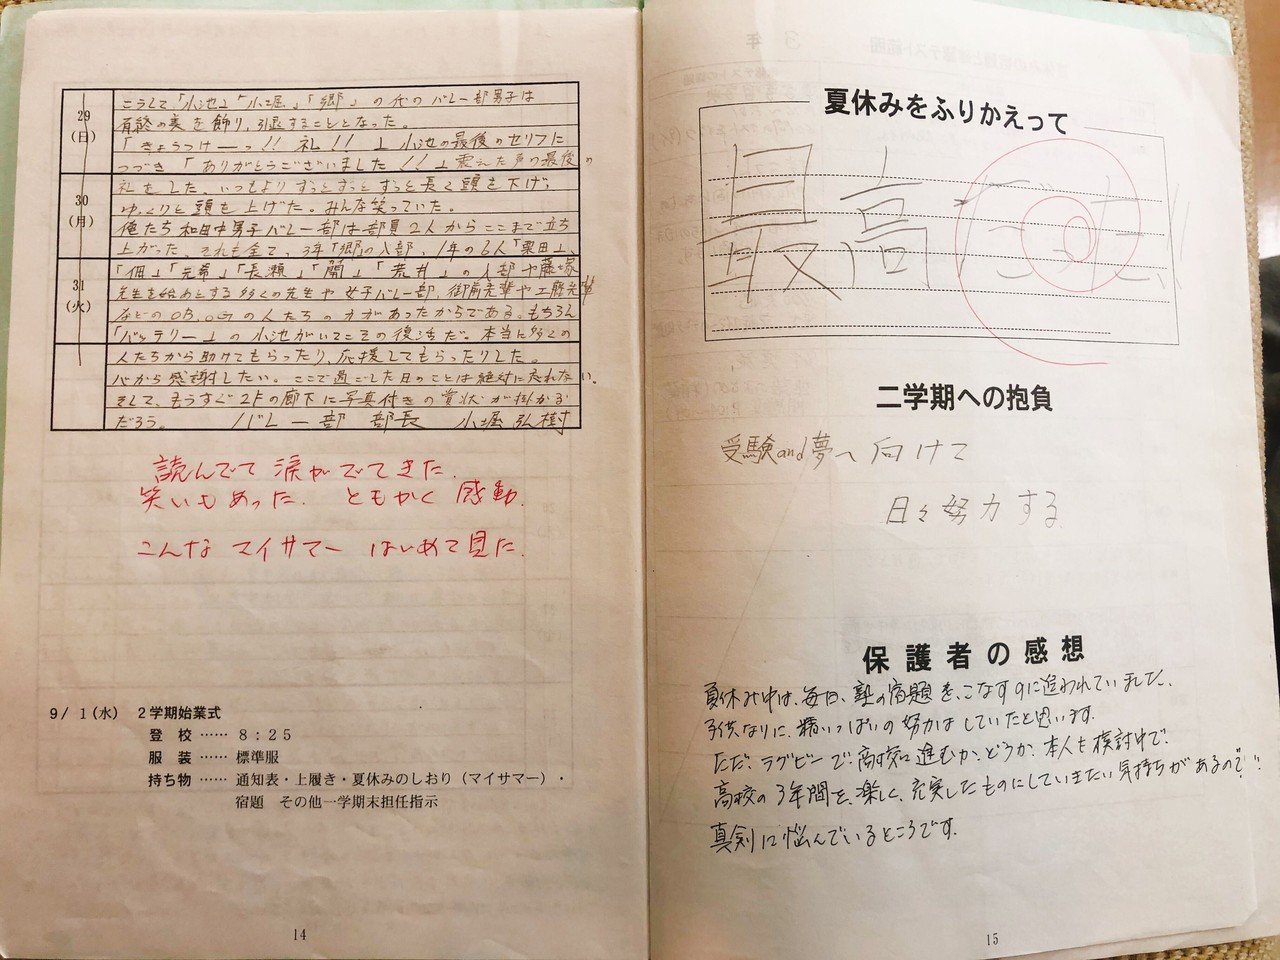 29
(日)
こうして、「小池」「小堀」「郷」の代のバレー部男子は
有終の美を飾り、引退することとなった。
「きょうつけーっ!! 礼!!」小池の最後のセリフに
つづき「ありがとうございました!!」震えた声の最後の
30
(月)
礼をした、いつもよりずっとずっとずっと長く頭を下げ、
ゆっくりと頭を上げた。みんな笑っていた。
俺たち和田中男子バレー部は部員2人からここまで立ち
上がった。それも全て、3年「郷」の入部、1年の6人「栗田」、
31
(火)
「佃」「元希」「長瀬」「関」「荒井」の入部や藤塚
先生を始めとする多くの先生や女子バレー部、御前先輩や工藤先輩
などのOB,OGの人たちの才があったからである。もちろん
「バッテリー」の小池がいてこその復活だ。本当に多くの
人たちから助けてもらったり、応援してもらったりした。
心から感謝したい。ここで過ごした日のことは絶対に忘れない。
そして、もうすぐ2Fの廊下に写真付きの賞状が掛かる
だろう。 バレー部 部長 小堀 弘樹
読んでて 涙がでてきた.
笑いもあった. ともかく 感動.
こんな マイサマー はじめて見た.
9/1(水) 2学期始業式
登 校 …… 8:25
服 装 …… 標準服
持ち物 …… 通知表・上履き・夏休みのしおり(マイサマー)・
宿題 その他一学期末担任指示
14
夏休みをふりかえって
最高だ!!
二学期への抱負
受験and夢へ向けて
日々努力する
保護者の感想
夏休み中は、毎日、塾の宿題を、こなすのに追われていました、
子供なりに、精いっぱいの努力はしていたと思います.
ただ、ラグビーで、高校に進むか、どうか、本人も検討中で、
高校の3年間を、楽しく、充実したものにしていきたい気持ちがあるので、
真剣に悩んでいるところです.
15